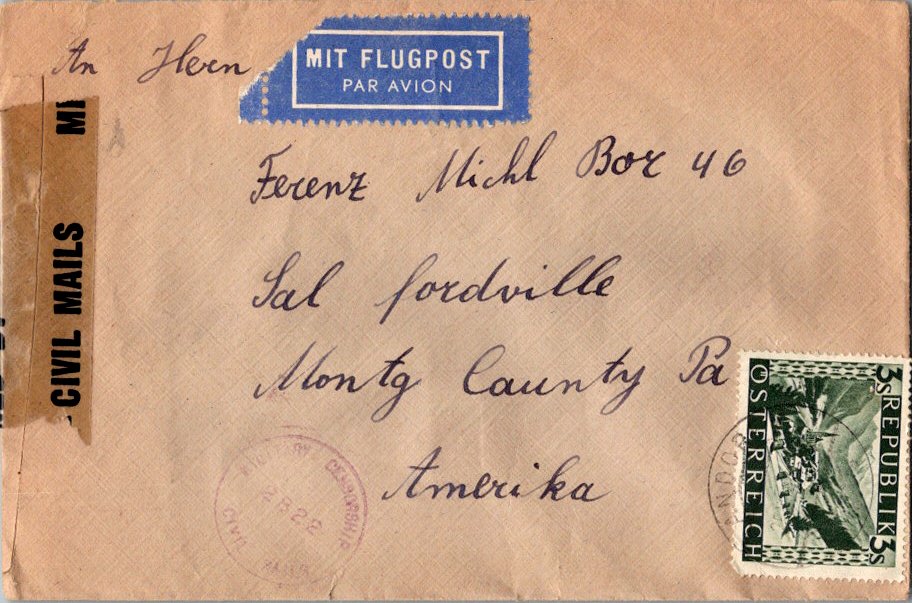 An Herrn
MIT FLUGPOST
PAR AVION
Ferenz Michl Box 46
Sal fordville
Montg Caunty Pa
Amerika
CIVIL MAILS MI
MILITARY CENSORSHIP
CIVIL MAILS
REPUBLIK
ÖSTERREICH
3s
3s